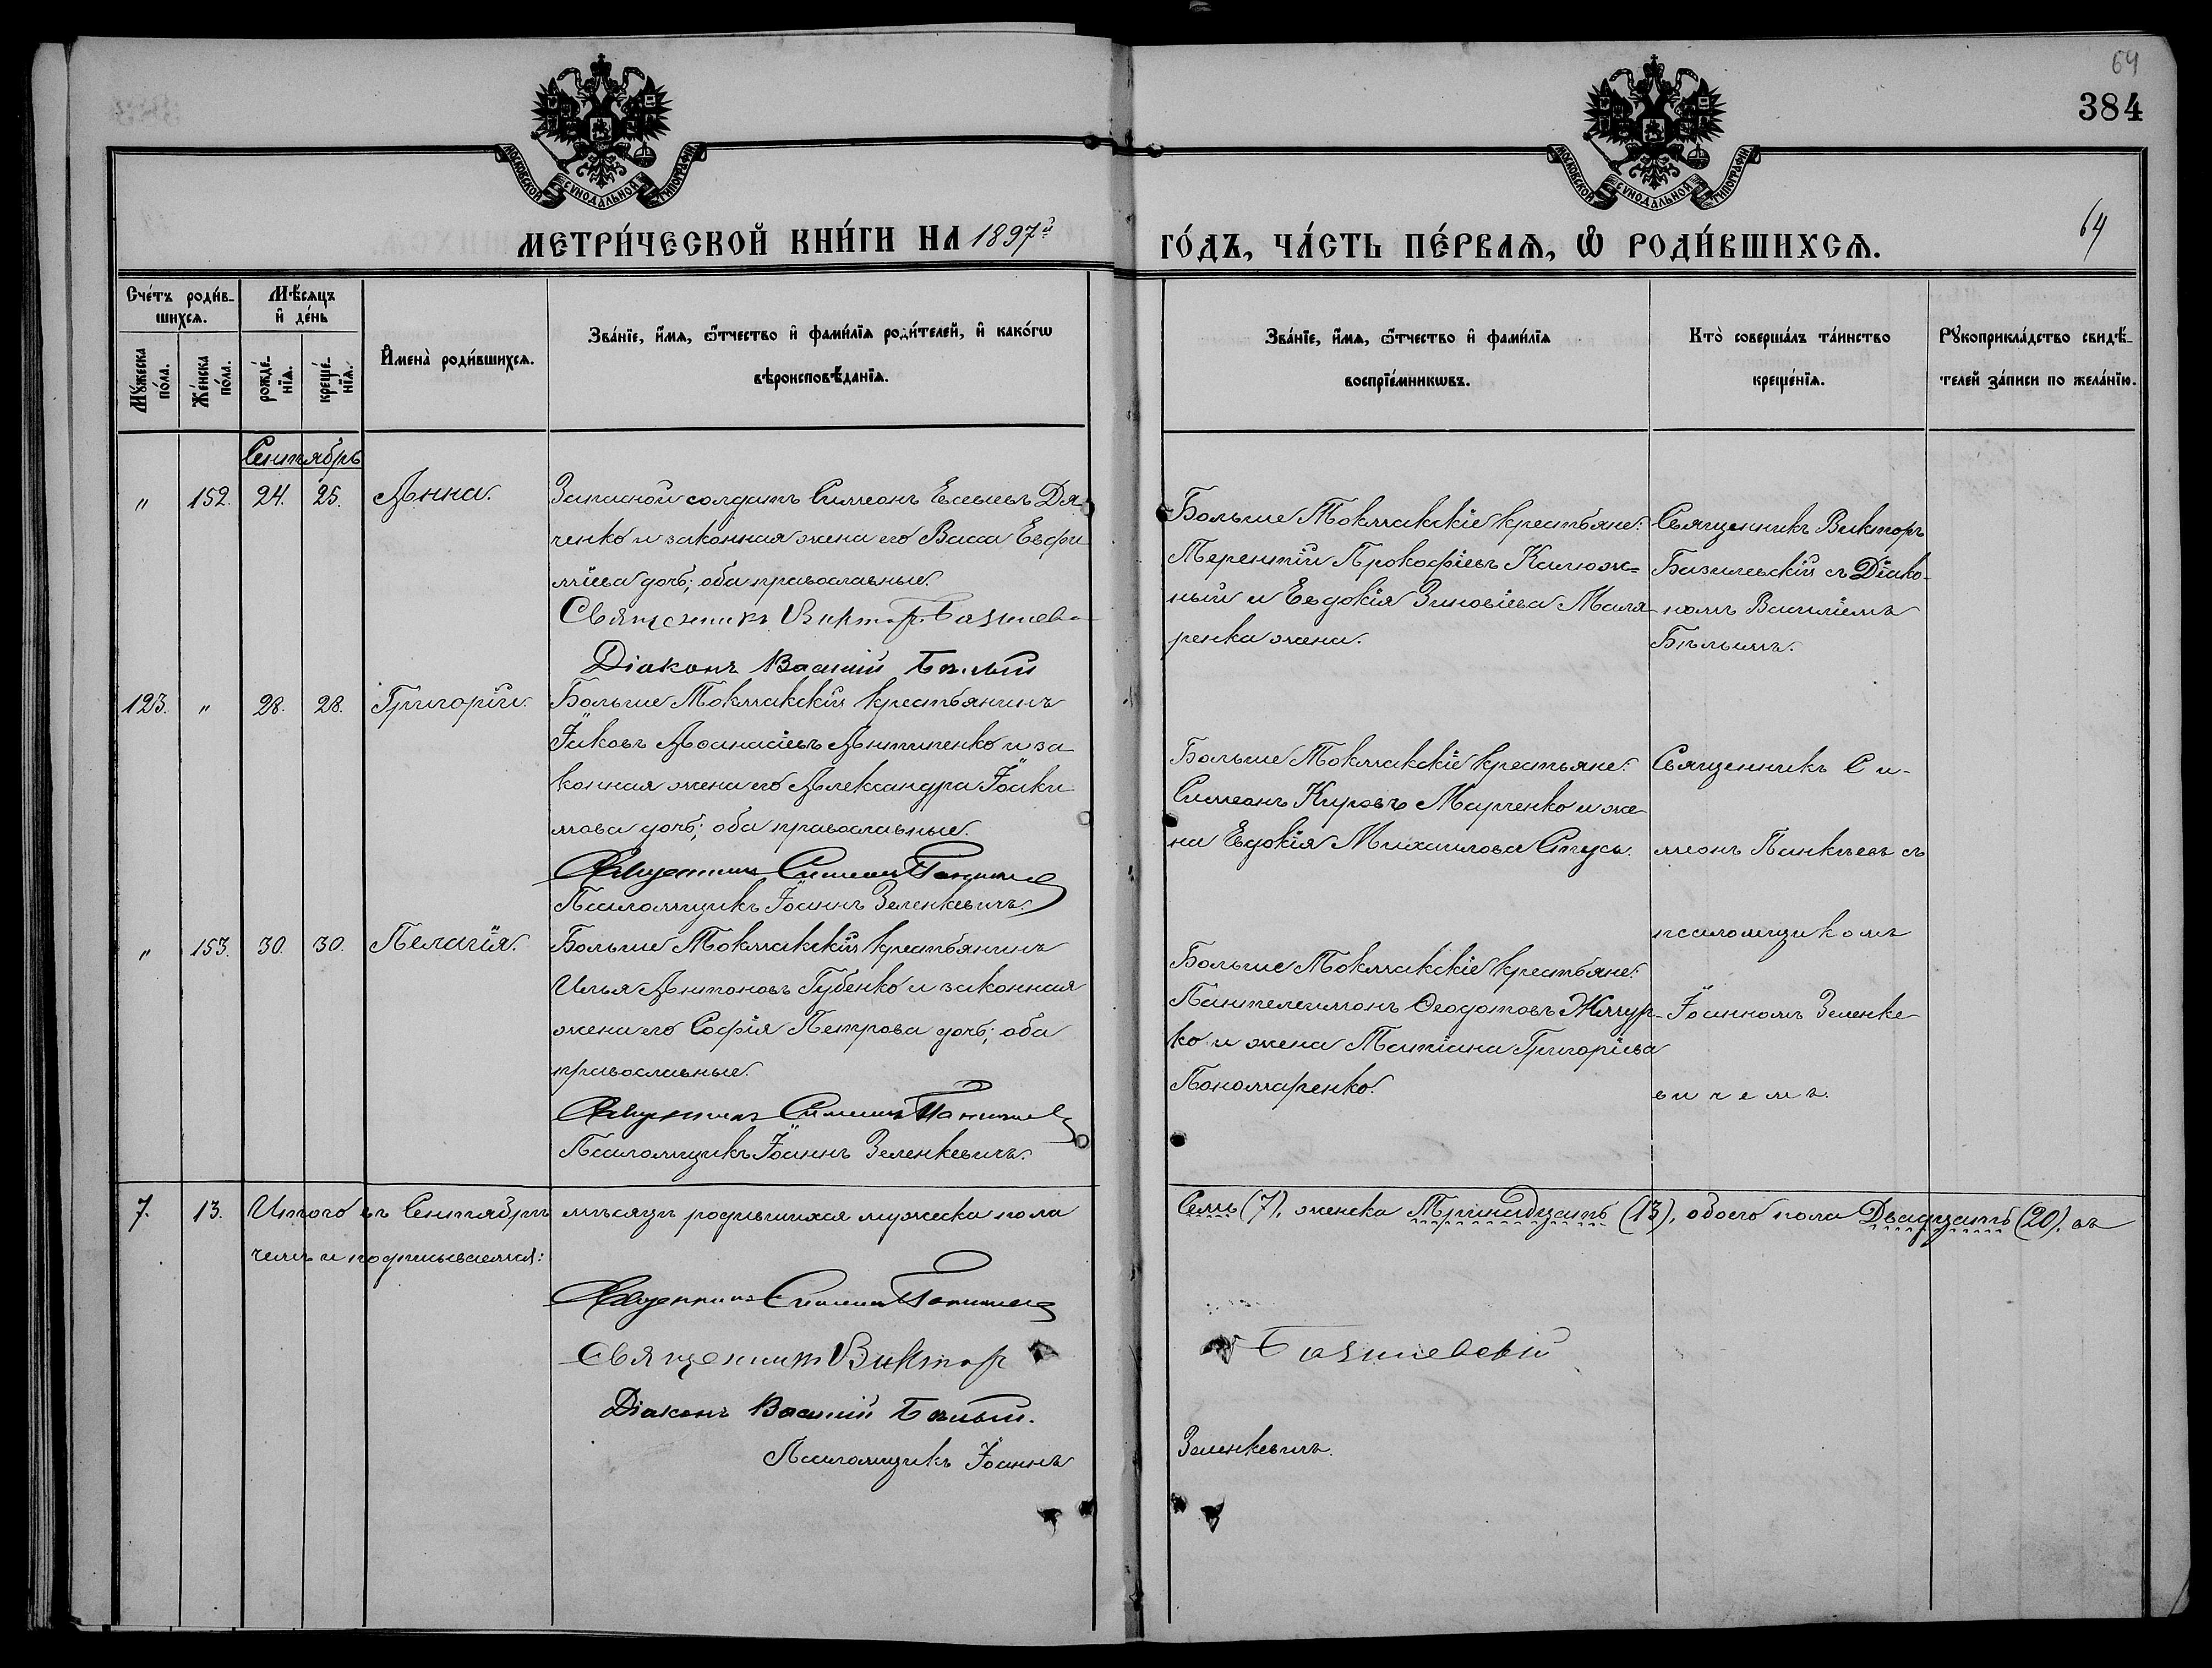 64
384
МОСКОВСКОЙ СѴНОДАЛЬНОЙ ТИПОГРАФІИ
МОСКОВСКОЙ СѴНОДАЛЬНОЙ ТИПОГРАФІИ
МЕТРИ́ЧЕСКОЙ КНИ́ГИ НА 1897й
ГО́ДЪ, ЧА́СТЬ ПЕ́РВАѦ, Ѡ҆ РОДИ́ВШИХСѦ.
64
Сче́тъ роди́в-
шихсѧ.
Мꙋ́жеска по́ла.
Же́нска по́ла.
Мѣ́сѧцъ
и҆ де́нь
рожде́-
нїѧ.
креще́-
нїѧ.
И҆мена̀ роди́вшихсѧ.
Зва́нїе, и҆́мѧ, ѻ҆́тчество и҆ фами́лїѧ роди́телей, и҆ како́гѡ
вѣроисповѣ́данїѧ.
Зва́нїе, и҆́мѧ, ѻ҆́тчество и҆ фами́лїѧ
воспрїе́мникѡвъ.
Кто̀ соверша́лъ та́инство
креще́нїѧ.
Рꙋкоприкла́дство свидѣ́-
телей за́писи по жела́нїю.
Сентябрь
" 152. 24. 25. Анна.
Запасной солдатъ Симеонъ Дя-
ченко и законная жена его Васса Евфи
міева дочь; оба православные.
Священникъ Викторъ
Діаконъ Василій Бѣлый
Больше Токмакскіе крестьяне:
Терентій Прокофіевъ Калюж=
ный и Евдокія Зиновіева Маля
ренка жена.
Священникъ Викторъ
Базилевскій съ Діако-
номъ Василіемъ
Бѣлымъ.
123. " 28. 28. Григорій.
Больше Токмакскій крестьянинъ
Іаковъ Аѳанасіевъ Антипенко и за
конная жена его Александра Іоаки
мова дочь; оба православные.
Священникъ Симеонъ
Псаломщикъ Іоаннъ Зеленкевичъ
Больше Токмакскіе крестьяне:
Симеонъ Кировъ Марченко и же
на Евдокія Михаилова Стусь.
Священникъ Си-
меонъ Панкѣевъ съ
псаломщикомъ
Іоанномъ Зеленке
вичемъ.
" 153. 30. 30. Пелагія.
Больше Токмакскій крестьянинъ
Илья Антоновъ Губенко и законная
жена его Софія Петрова дочь; оба
православные.
Священникъ Симеонъ
Псаломщикъ Іоаннъ Зеленкевичъ.
Больше Токмакскіе крестьяне:
Пантелеимонъ Ѳеодотовъ Жмур-
ко и жена Татіана Григоріева
Пономаренко.
7. 13. Итого въ Сентябрѣ мѣсяцѣ родившихся мужеска пола
Семь (7), женска Тринадцать (13), обоего пола Двадцать (20), въ
чемъ и подписываемся:
Священникъ Симеонъ
Священникъ Викторъ
Базилевскій
Діаконъ Василій Бѣлый.
Псаломщикъ Іоаннъ
Зеленкевичъ.